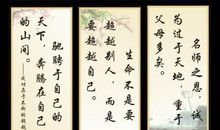 名师之恩，诚
为过于天地，重于
父母多矣。
生命不是要
超越别人，而是
要超越自己。
驰骋于自己的
天下，奔腾在自己
的山间。